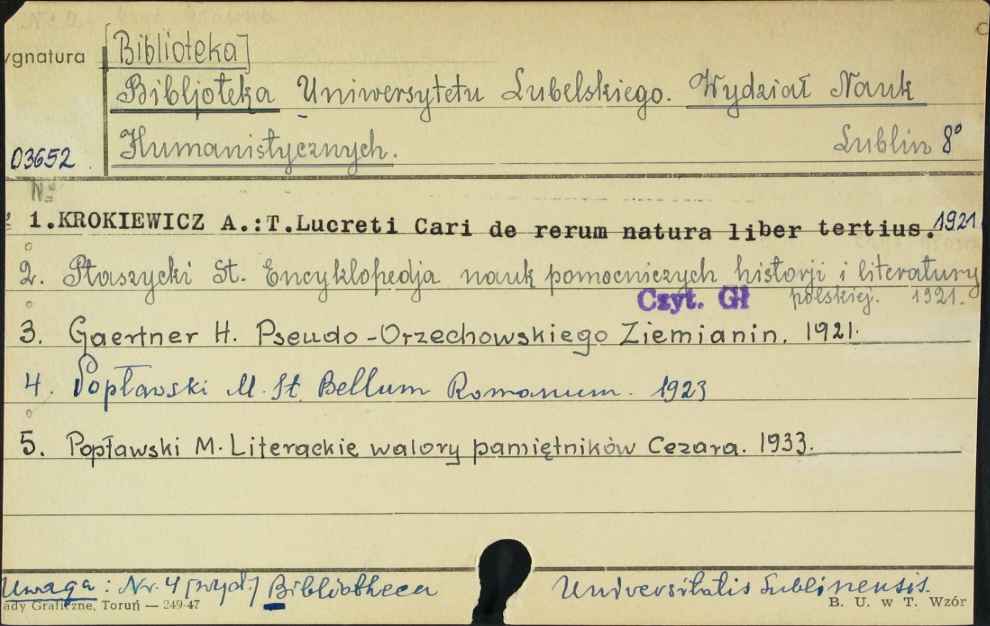 ygnatura [Biblioteka]
Bibljoteka Uniwersytetu Lubelskiego. Wydział Nauk
03652 Humanistycznych. Lublin 8°
№
1. KROKIEWICZ A.:T.Lucreti Cari de rerum natura liber tertius. 1921
2. Ptaszycki St. Encyklopedja nauk pomocniczych historji i literatury
Czyt. Gł polskiej. 1921.
3. Gaertner H. Pseudo-Orzechowskiego Ziemianin. 1921.
4. Popławski M. St. Bellum Romanum. 1923
5. Popławski M. Literackie walory pamiętników Cezara. 1933.
Uwaga: Nr. 4 [wyd.] Bibliotheca Universitatis Lublinensis.
ady Graficzne, Toruń — 249-47 B. U. w T. Wzór